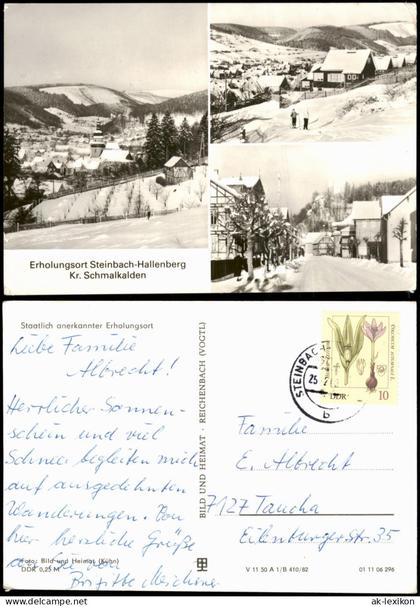 Erholungsort Steinbach-Hallenberg
Kr. Schmalkalden
Staatlich anerkannter Erholungsort
Liebe Familie
Albrecht!
Herrlicher Sonnen-
schein und viel
Schnee begleiten mich
auf ausgedehnten
Wanderungen. Von
hier herzliche Grüße
Brigitte
Foto: Bild und Heimat (Kühn)
DDR 0,25 M
BILD UND HEIMAT · REICHENBACH (VOGTL)
STEINBACH
25
b
DDR
10
Familie
E. Albrecht
7127 Taucha
Eilenburgerstr. 35
V 11 50 A 1/B 410/82
01 11 06 296
© www.ak-lexikon.com